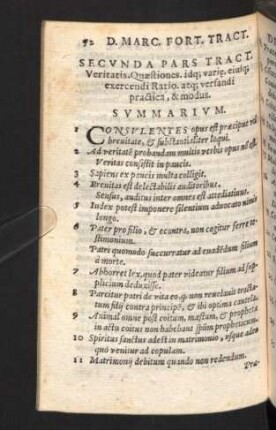 92 D. MARC. FORT. TRACT.
SECVNDA PARS TRACT.
Veritatis. Quæstiones. idq; varie. eiusq;
exercendi Ratio. atq; versandi
practica, & modus.
SVMMARIVM.
1 CONSVLENTES opus est præcipue vti
breuitate, & substantialiter loqui.
2 Ad veritatē probandam multis verbis opus nō est.
Veritas consistit in paucis.
3 Sapiens ex paucis multa colligit.
4 Breuitas est delectabilis auditoribus.
Sensus, auditus inter omnes est
5 Iudex potest imponere silentium aduocato nimis
longo.
6 Pater pro filio, & econtra, non cogitur ferre te-
stimonium.
Patri quomodo succurratur ad euadēdum filium
à morte.
7 Abhorret lex, quod pater videatur filium ad sup-
plicium deduxisse.
8 Parcitur patri de vita eo, q non reuelauit tracta-
tum filij contra principē, & ibi optima cautela.
9 Animal omne post coitum, mæstum, & propheta
in actu coitus non habebant spūm propheticum.
10 Spiritus sanctus adest in matrimonio, vsque adeo
quo veniatur ad copulam.
11 Matrimonij debitum quando non reddendum.